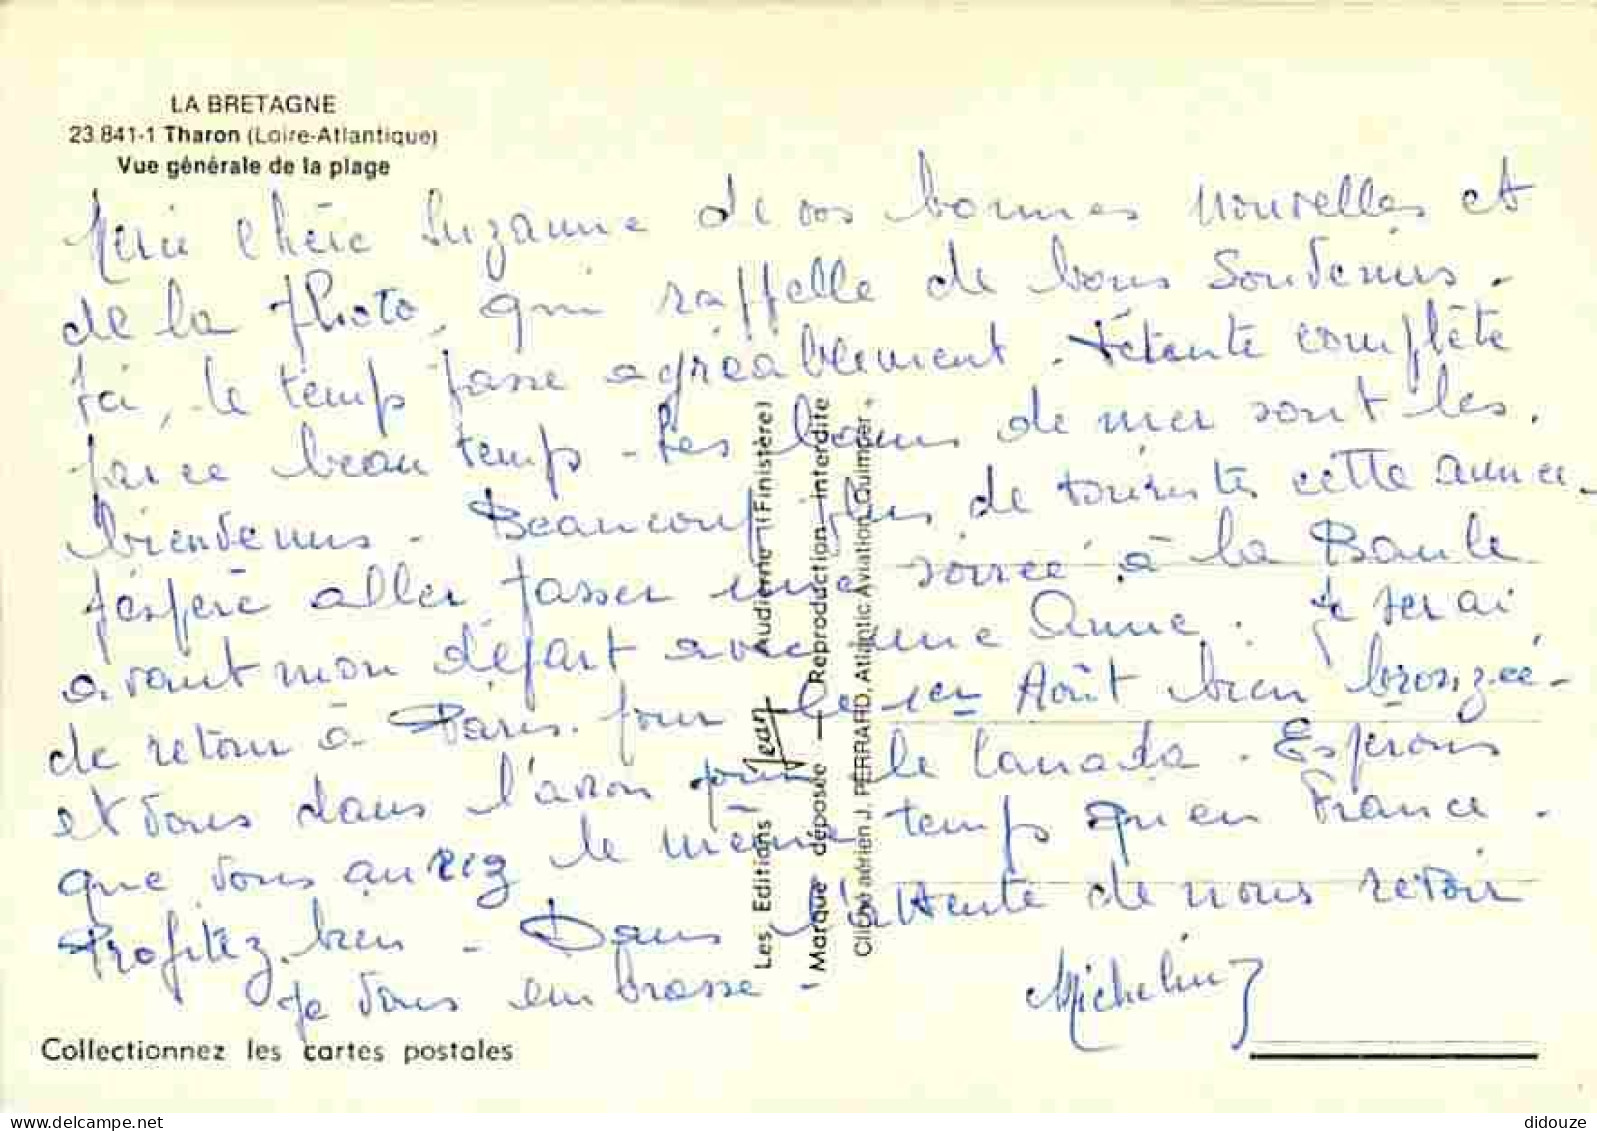 LA BRETAGNE
23.841-1 Tharon (Loire-Atlantique)
Vue générale de la plage
Merci chère Suzanne de vos bonnes nouvelles et
de la photo, qui raffelle de bons souvenirs.
Ici, le temps passe agréablement. Détente complète
parce beau temps - Les bains de mer sont les
bienvenus - Beaucoup plus de touristes cette année -
J'espère aller passer une soirée à la Baule
avant mon départ avec une Amie. Je serai
de retour à Paris pour le 1er Août bien bronzée -
et vous dans l'avion pour le Canada. Espérons
que vous aurez le même temps qu'en France -
Profitez bien - Dans l'attente de nous revoir
je vous embrasse -
Micheline
Les Editions Jean Audierne (Finistère)
Marque déposée — Reproduction interdite
Cliché aérien J. PERRARD, Atlantic Aviation Quimper.
Collectionnez les cartes postales
delcampe.net
didouze